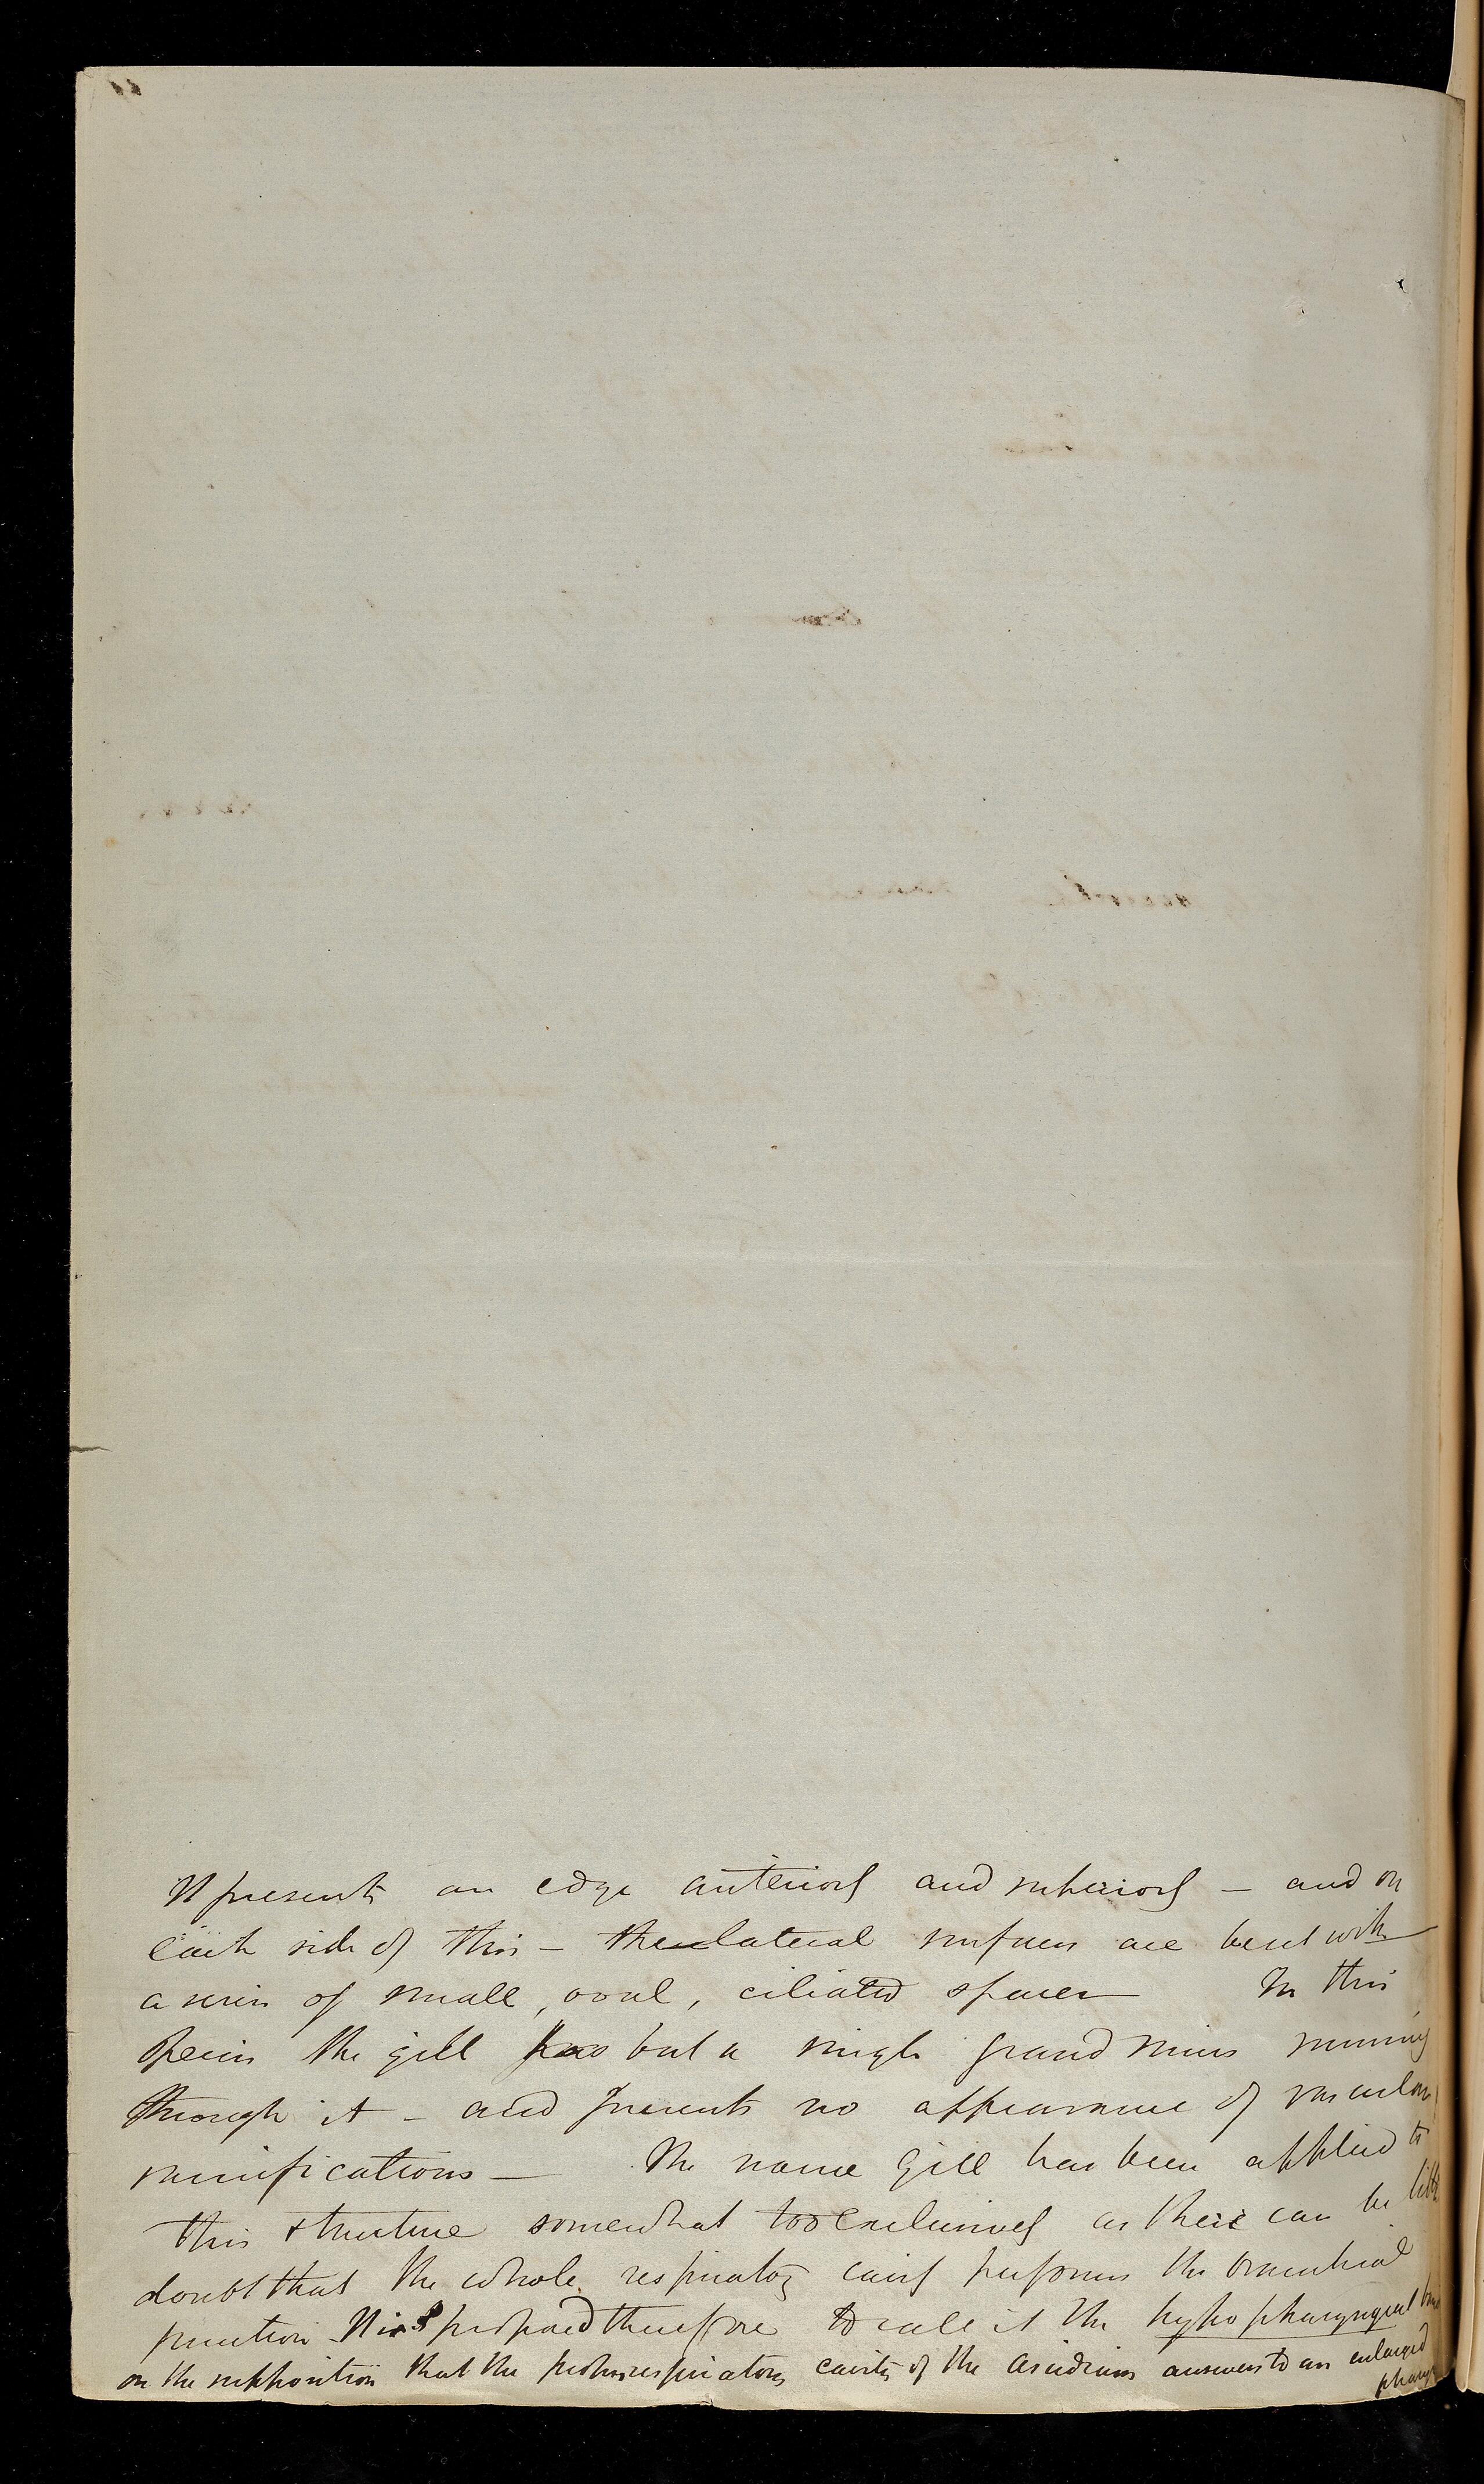 It presents an edge anteriorly and inferiorly — and on
each side of this — the lateral surfaces are beset with
a series of small, oval, ciliated spaces In this
Species the gill has but a single grand sinus running
through it — and presents no appearance of vascular
ramifications — The name gill has been applied to
this structure somewhat too exclusively as there can be little
doubt that the whole respiratory cavity performs the branchial
function It is proposed therefore to call it the hypo pharyngeal
on the supposition that the respiratory cavity of the Ascidians answers to an enlarged